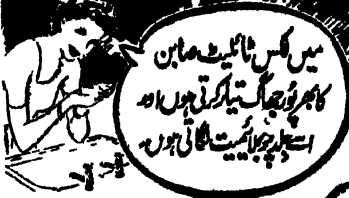 میں لکس ٹائلیٹ صابن
کا بھرپور جھاگ تیار کرتی ہوں اور
اسے جلد پر بملائمیت لگاتی ہوں۔